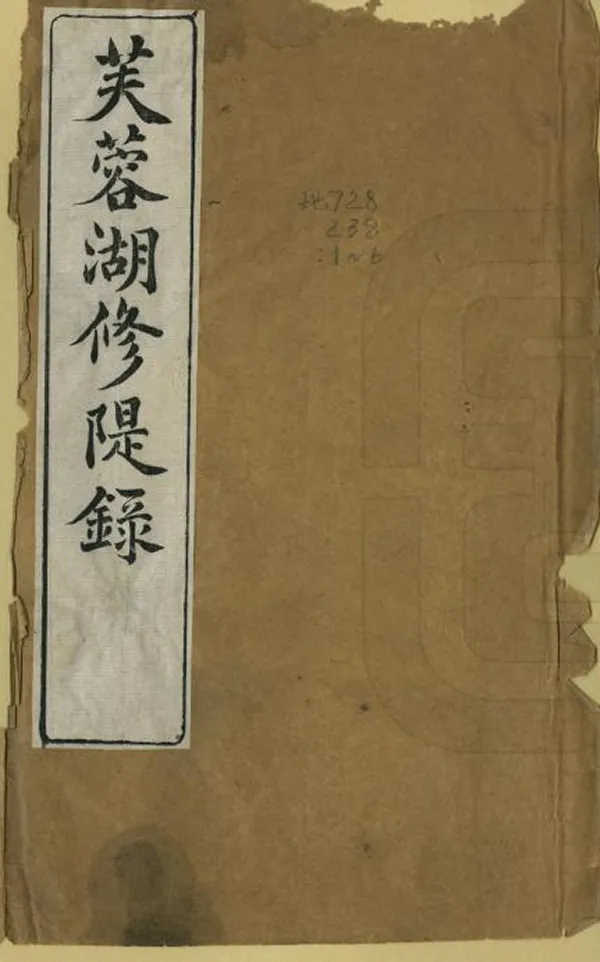 芙蓉湖修隄錄
地728
238
:1~6